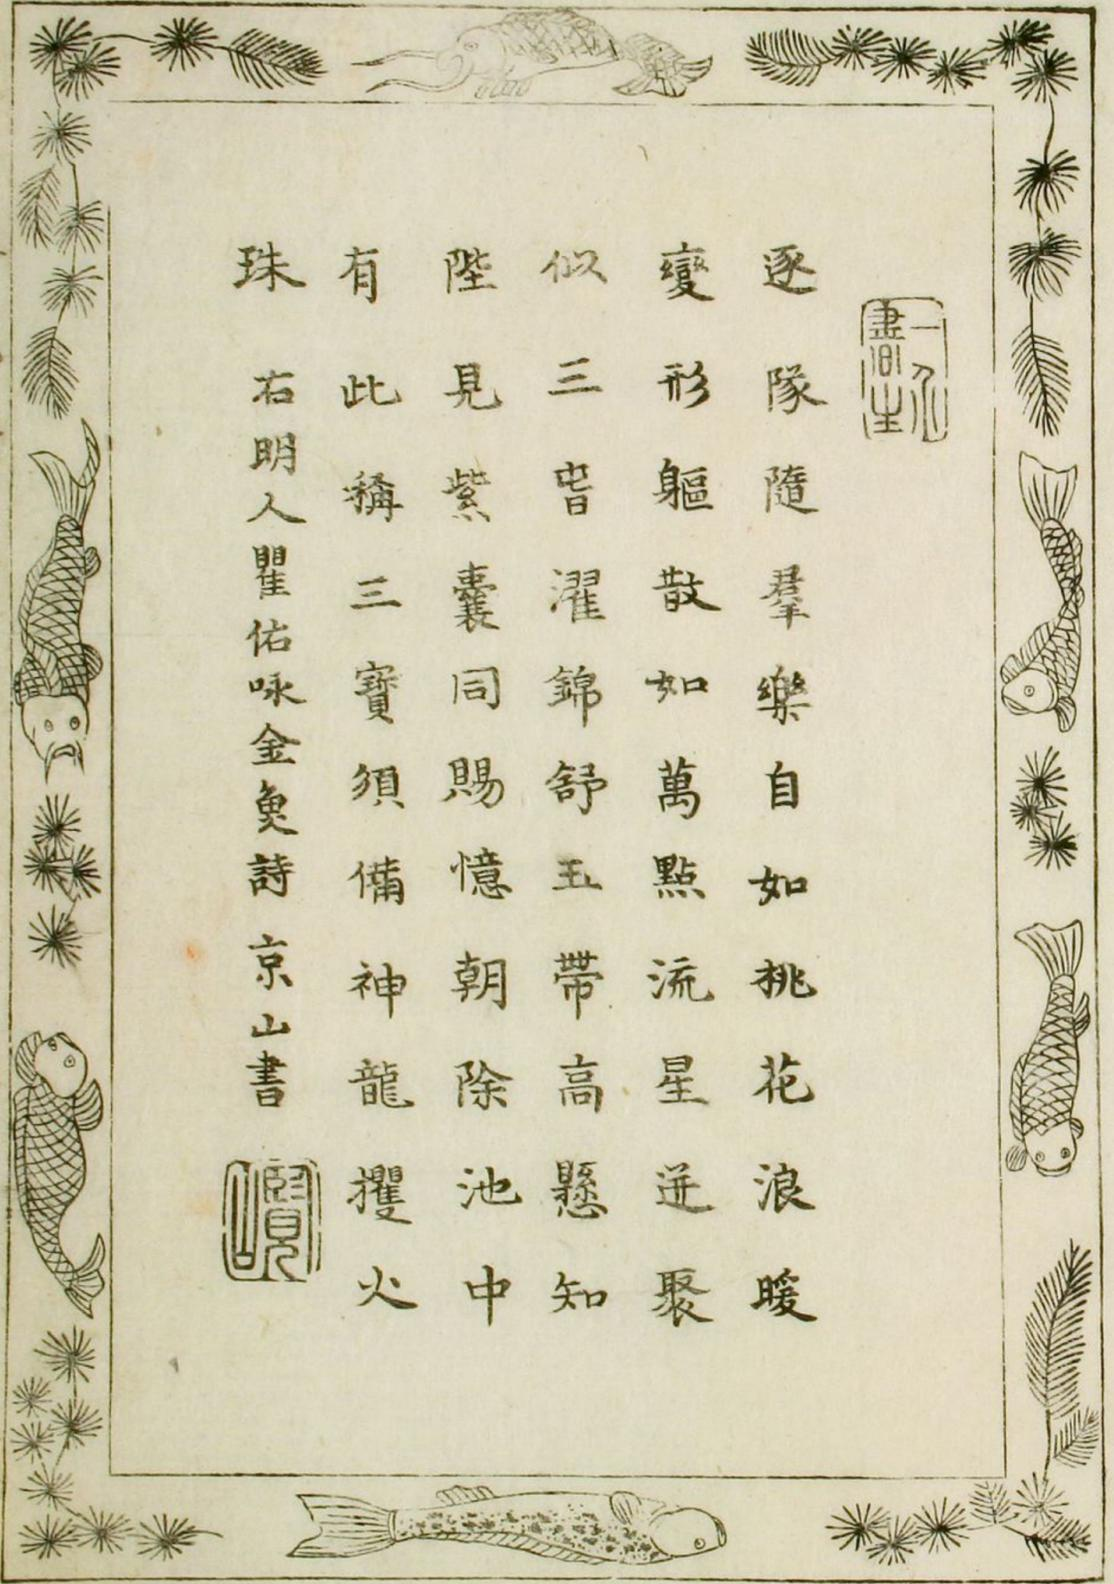 逐隊隨羣樂自如桃花浪暖
變形軀散如萬點流星迸聚
似三旹濯錦舒玉帶高懸知
陛見紫囊同賜憶朝除池中
有此稱三寶須備神龍攫火
珠 右明人瞿佑咏金魚詩 京山書